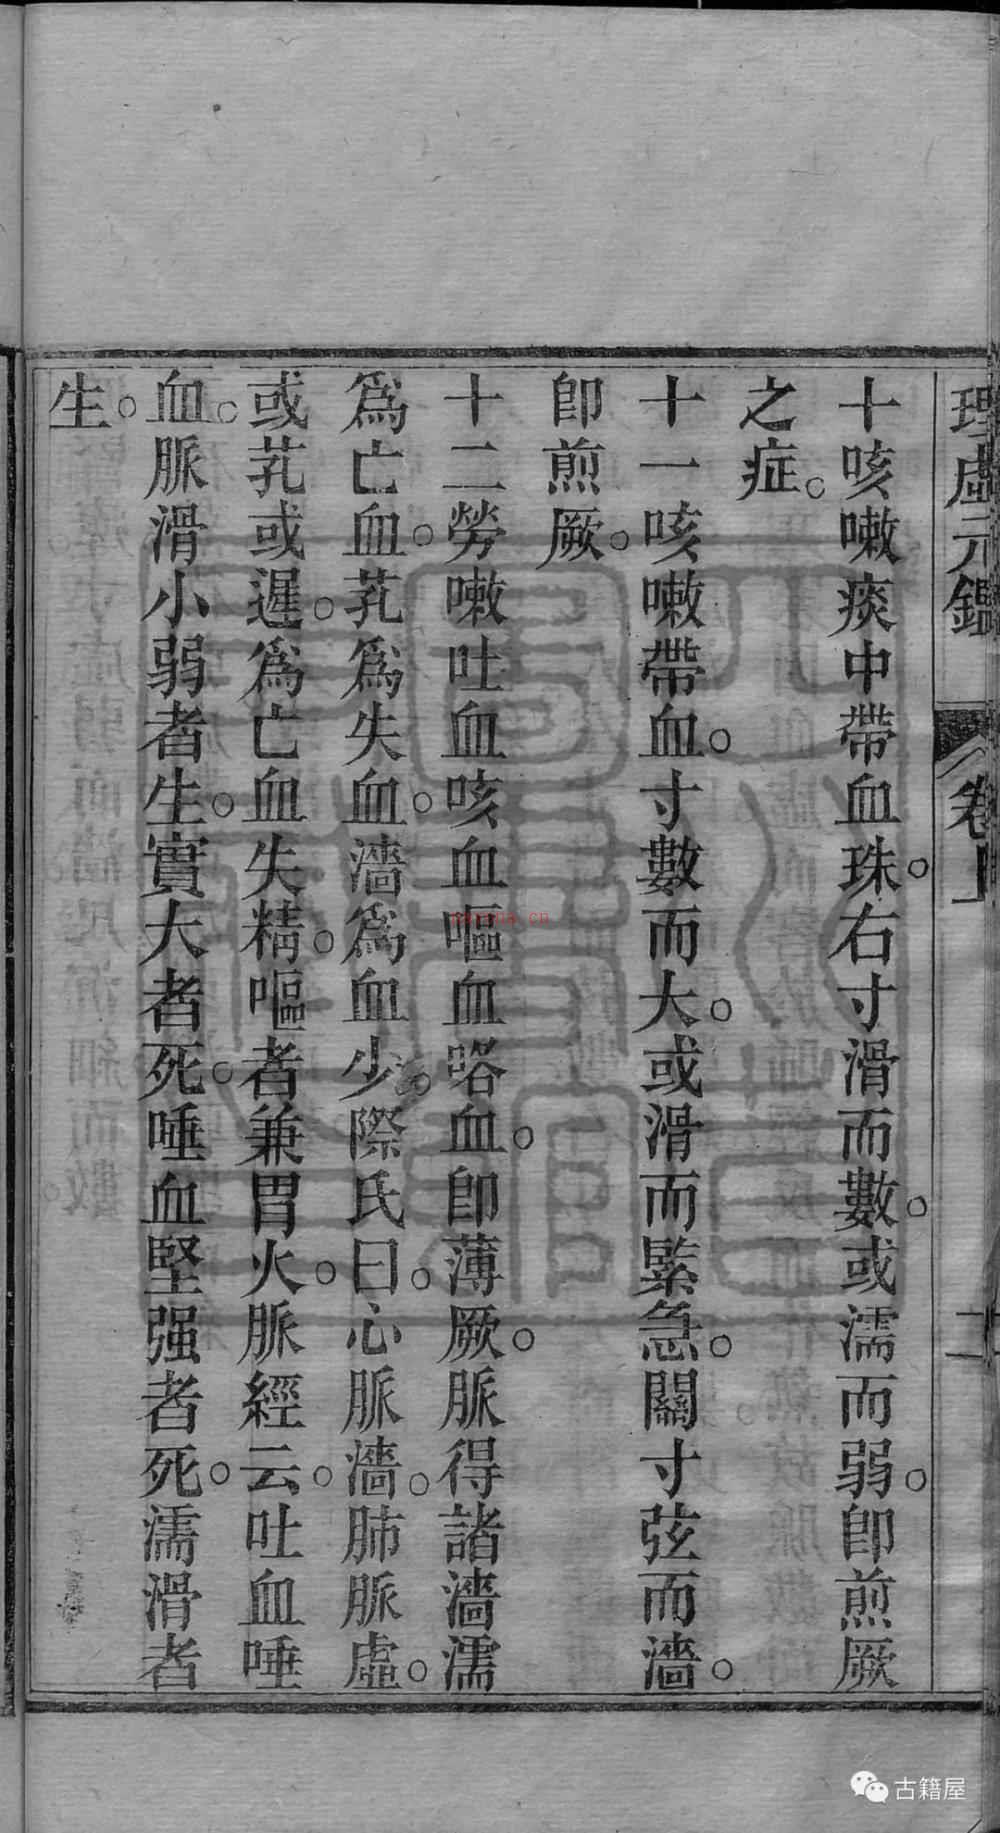 理虛元鑑
卷上
二
十咳嗽痰中帶血珠。右寸滑而數。或濡而弱。卽煎厥
之症。
十一咳嗽帶血。寸數而大。或滑而緊急。關寸弦而濇。
卽煎厥。
十二勞嗽吐血咳血嘔血咯血。卽薄厥。脈得諸濇濡
爲亡血。芤爲失血。濇爲血少。際氏曰。心脈濇。肺脈虛。
或芤或遲。爲亡血失精。嘔者兼胃火。脈經云。吐血唾
血。脈滑小弱者生。實大者死。唾血堅强者死。濡滑者
生。
nayona.cn
古籍屋